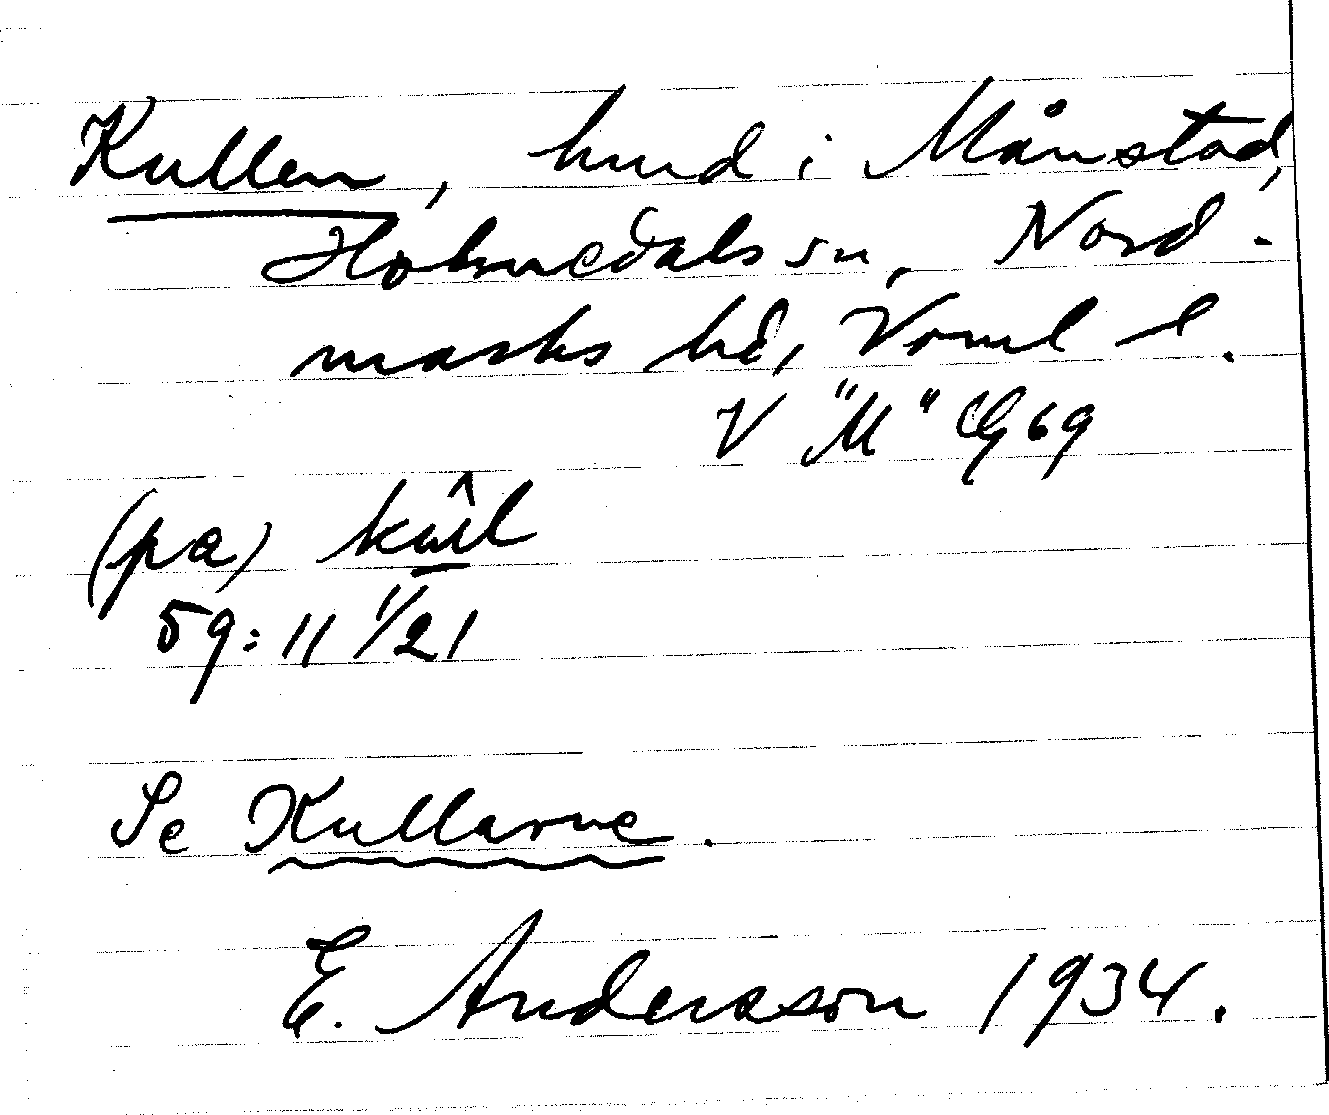 Kullen, hmd i Månstad,
Holmedals sn, Nord-
marks hd, Vrml l.
V "M" CG 69
(pa) kûl
59: 11 1/21
Se Kullarne.
E. Anderson 1934.